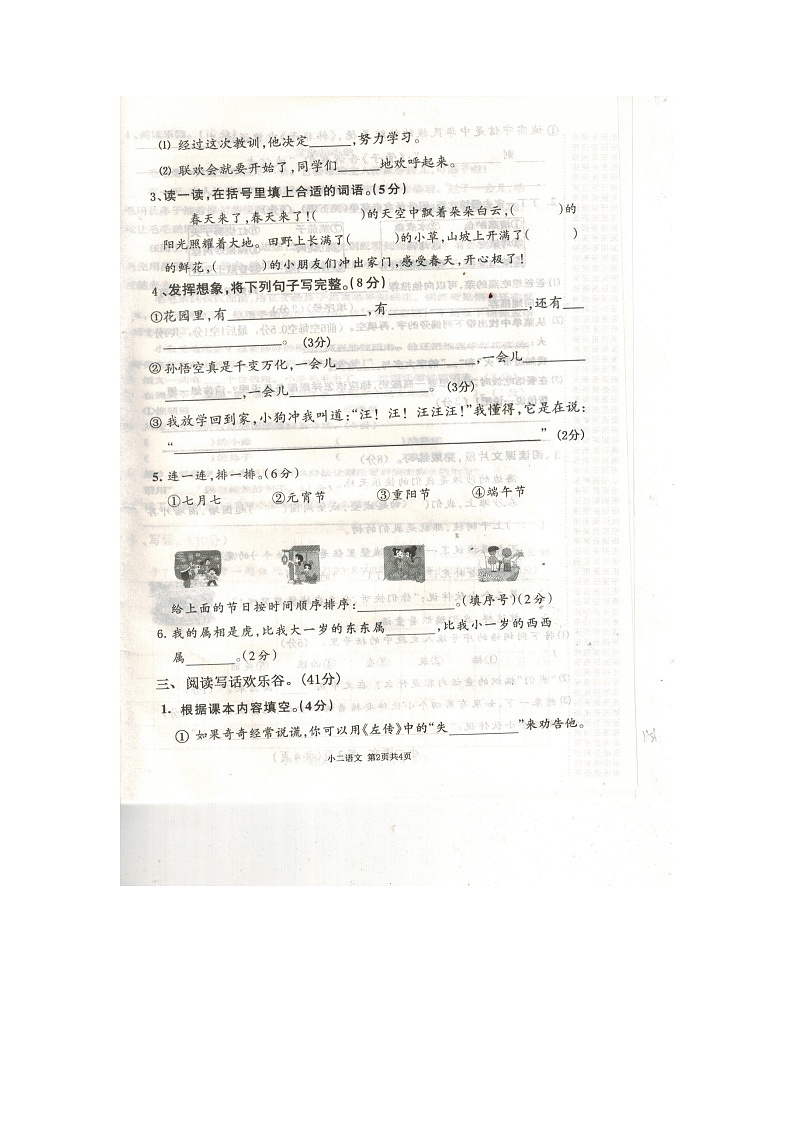 ⑴ 经过这次教训,他决定______,努力学习。
⑵ 联欢会就要开始了,同学们______地欢呼起来。
3、读一读,在括号里填上合适的词语。(5分)
春天来了,春天来了!(      )的天空中飘着朵朵白云,(      )的
阳光照耀着大地。田野上长满了(      )的小草,山坡上开满了(      )
的鲜花,(      )的小朋友们冲出家门,感受春天,开心极了!
4、发挥想象,将下列句子写完整。(8分)
①花园里,有______________,有______________,还有____
____________。(3分)
②孙悟空真是千变万化,一会儿______________,一会儿________
__________,一会儿______________。(3分)
③我放学回到家,小狗冲我叫道:“汪!汪!汪汪汪!”我懂得,它是在说:
“____________________________________________”(2分)
5. 连一连,排一排。(6分)
①七月七 ②元宵节 ③重阳节 ④端午节
给上面的节日按时间顺序排序:____________。(填序号)(2分)
6. 我的属相是虎,比我大一岁的东东属______,比我小一岁的西西
属______。(2分)
三、阅读写话欢乐谷。(41分)
1. 根据课本内容填空。(4分)
① 如果奇奇经常说谎,你可以用《左传》中的“失________”来劝告他。
小二语文 第2页共4页